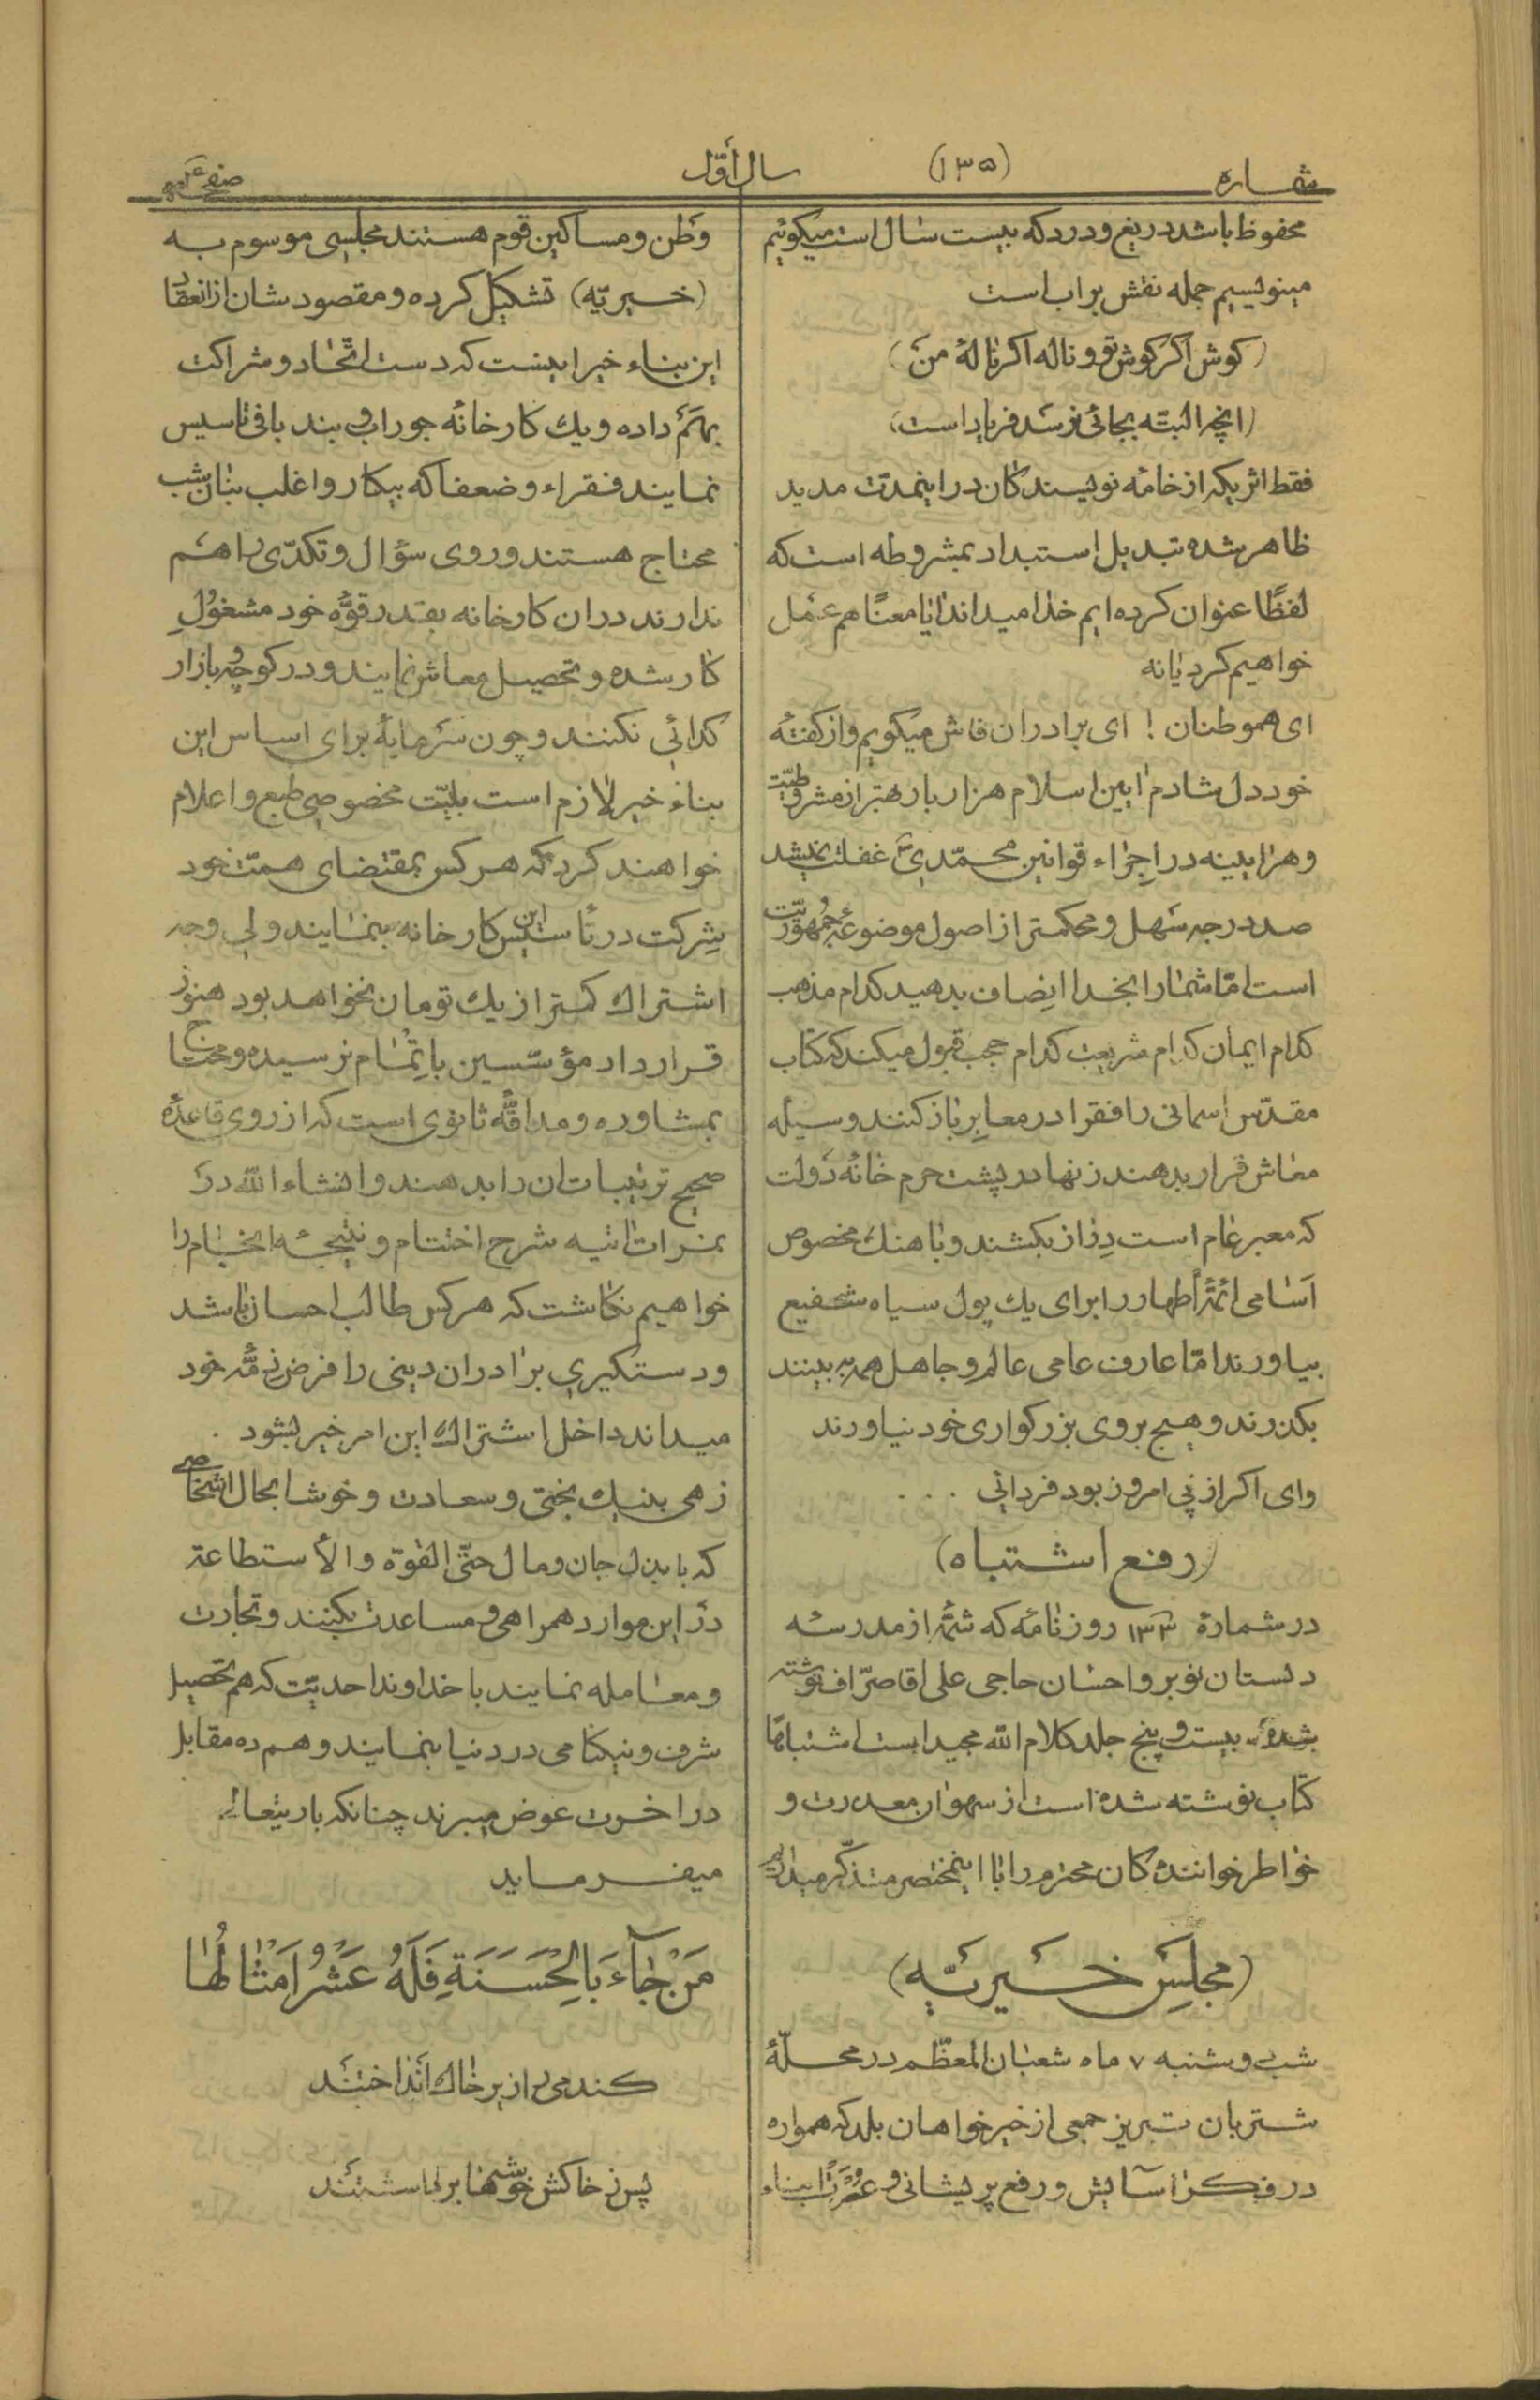 شماره (۱۳۵) سال أوّل صفحه
محفوظ باشد دریغ و درد که بیست سال است میکوئیم
مینویسیم جمله نقش بر اب است
(کوش اکر کوش تو و ناله اکر نالهٔ من)
(انچه البتّه بجائی نرسد فریاد است)
فقط اثریکه از خامه نویسندکان در اینمدّت مدید
ظاهر شده تبدیل استبداد بمشروطه است که
لفظًا عنوان کرده ایم خدا میداند ایا معنًا هم عمل
خواهیم کرد یا نه
ای هموطنان ! ای برادران فاش میکویم و از کفتهٔ
خود دل شادم ایین اسلام هزار بار بهتر از مشروطیّت
و هرایینه در اجراء قوانین محمّدی غفلت نمیشد
صد درجه سهل و محکمتر از اصول موضوعهٔ جمهوریّت
است امّا شما را بخدا انصاف بدهید کدام مذهب
کدام ایمان کدام شریعت کدام قبول میکند که کتاب
مقدّس اسمانی را فقرا در معابر باز کنند وسیله
معاش قرار بدهند زنها در پشت حرم خانهٔ دولت
که معبر عام است دراز بکشند و با اهنك مخصوص
أسامی ائمّهٔ أطهار را برای یك پول سیاه شفیع
بیاورند امّا عارف عامی عالم و جاهل همه به بینند
بکذرند و هیچ بروی بزرکواری خود نیاورند
وای اکر از پی امروز بود فردائی . . .
(رفع اشتباه)
در شمارهٔ ۱۳۳ روزنامه که شمّهٔ از مدرسه
دبستان نوبر و احسان حاجی علی اقا صرّاف نوشته
شده بیست و پنج جلد کلام الله مجید است اشتباهًا
کتاب نوشته شده است از سهو ان معذرت و
خواطر خوانندهکان محترم را با اینمختصر متذکّر میداریم
(مجلس خیریّه)
شب دوشنبه ۷ ماه شعبان المعظّم در محلّهٔ
شتربان تبریز جمعی از خیرخواهان بلد که همواره
در فکر آسایش و رفع پریشانی و عسرت ابناء
وطن و مساکین قوم هستند مجلسی موسوم به
(خیریّه) تشکیل کرده و مقصودشان از انعقاد
این بناء خیر اینست که دست اتّحاد و شراکت
بهم داده و یك کارخانه جوراب و بند بافی تاسیس
نمایند فقراء و ضعفا که بیکار و اغلب بنان شب
محتاج هستند و روی سؤال و تکدّی را هم
ندارند در ان کارخانه بقدر قوّهٔ خود مشغول
کار شده و تحصیل معاش نمایند و در کوچه و بازار
کدائی نکنند و چون سرمایهٔ برای اساس این
بناء خیر لازم است بلیّت مخصوصی طبع و اعلام
خواهند کرد که هر کس بمقتضای همّت خود
شرکت در تأسیس این کارخانه بنمایند ولی وجه
اشتراك کمتر از یك تومان نخواهد بود هنوز
قرارداد مؤسّسین باتمام نرسیده و محتاج
بمشاوره و مداقّهٔ ثانوی است که از روی قاعدهٔ
صحیح ترتیبات ان را بدهند و انشاء الله در
نمرات اتیه شرح اختتام و نتیجهٔ انجام را
خواهیم نکاشت که هر کس طالب احسان باشد
و دستکیری برادران دینی را فرض ذمّهٔ خود
میداند داخل اشتراك این امر خیر بشود .
زهی بنیك بختی و سعادت و خوشا بحال اشخاصی
که با بذل جان و مال حتّی القوّه و الأستطاعة
در این موارد همراهی و مساعدت بکنند و تجارت
و معامله نمایند با خداوند احدیّت که هم تحصیل
شرف و نیکنامی در دنیا بنمایند و هم ده مقابل
در اخرت عوض میبرند چنانکه باریتعالی
میفرماید
مَنْ جَآءَ بِالْحَسَنَةِ فَلَهُ عَشْرُ اَمْثَالُهَا
کندمی را زیر خاك انداختند
پس ز خاکش خوشه‌ها برداشتند